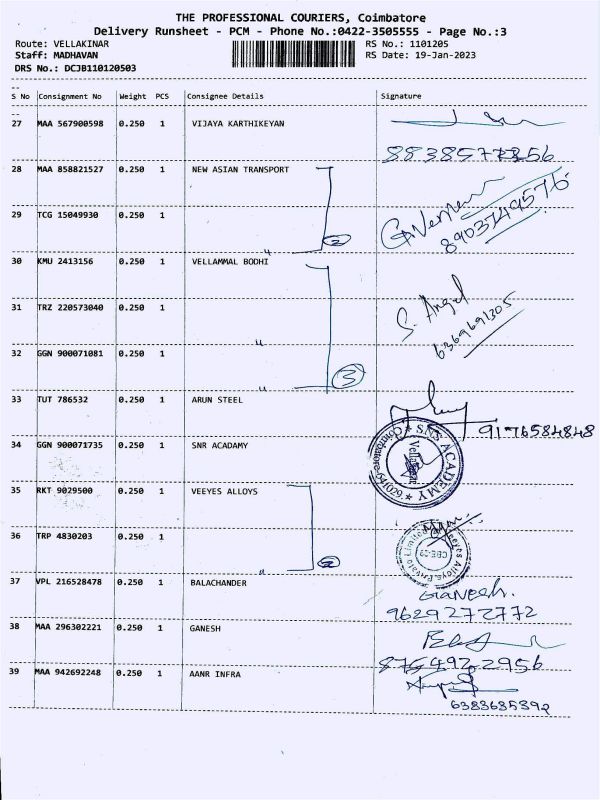 THE PROFESSIONAL COURIERS, Coimbatore
Delivery Runsheet - PCM - Phone No.:0422-3505555 - Page No.:3
Route: VELLAKINAR RS No.: 1101205
Staff: MADHAVAN RS Date: 19-Jan-2023
DRS No.: DCJB110120503
S No Consignment No Weight PCS Consignee Details Signature
27 MAA 567900598 0.250 1 VIJAYA KARTHIKEYAN
28 MAA 858821527 0.250 1 NEW ASIAN TRANSPORT
8903749576
29 TCG 15049930 0.250 1 2
30 KMU 2413156 0.250 1 VELLAMMAL BODHI
S. Angel
31 TRZ 220573040 0.250 1
6369691305
32 GGN 900071081 0.250 1 3
33 TUT 786532 0.250 1 ARUN STEEL
9176584848
34 GGN 900071735 0.250 1 SNR ACADAMY
SNS ACADEMY
Coimbatore-641029
35 RKT 9029500 0.250 1 VEEYES ALLOYS
36 TRP 4830203 0.250 1 2
Veeyes Alloys Private Limited
37 VPL 216528478 0.250 1 BALACHANDER
Ganesh.
9629272772
38 MAA 296302221 0.250 1 GANESH
8764922956
39 MAA 942692248 0.250 1 AANR INFRA